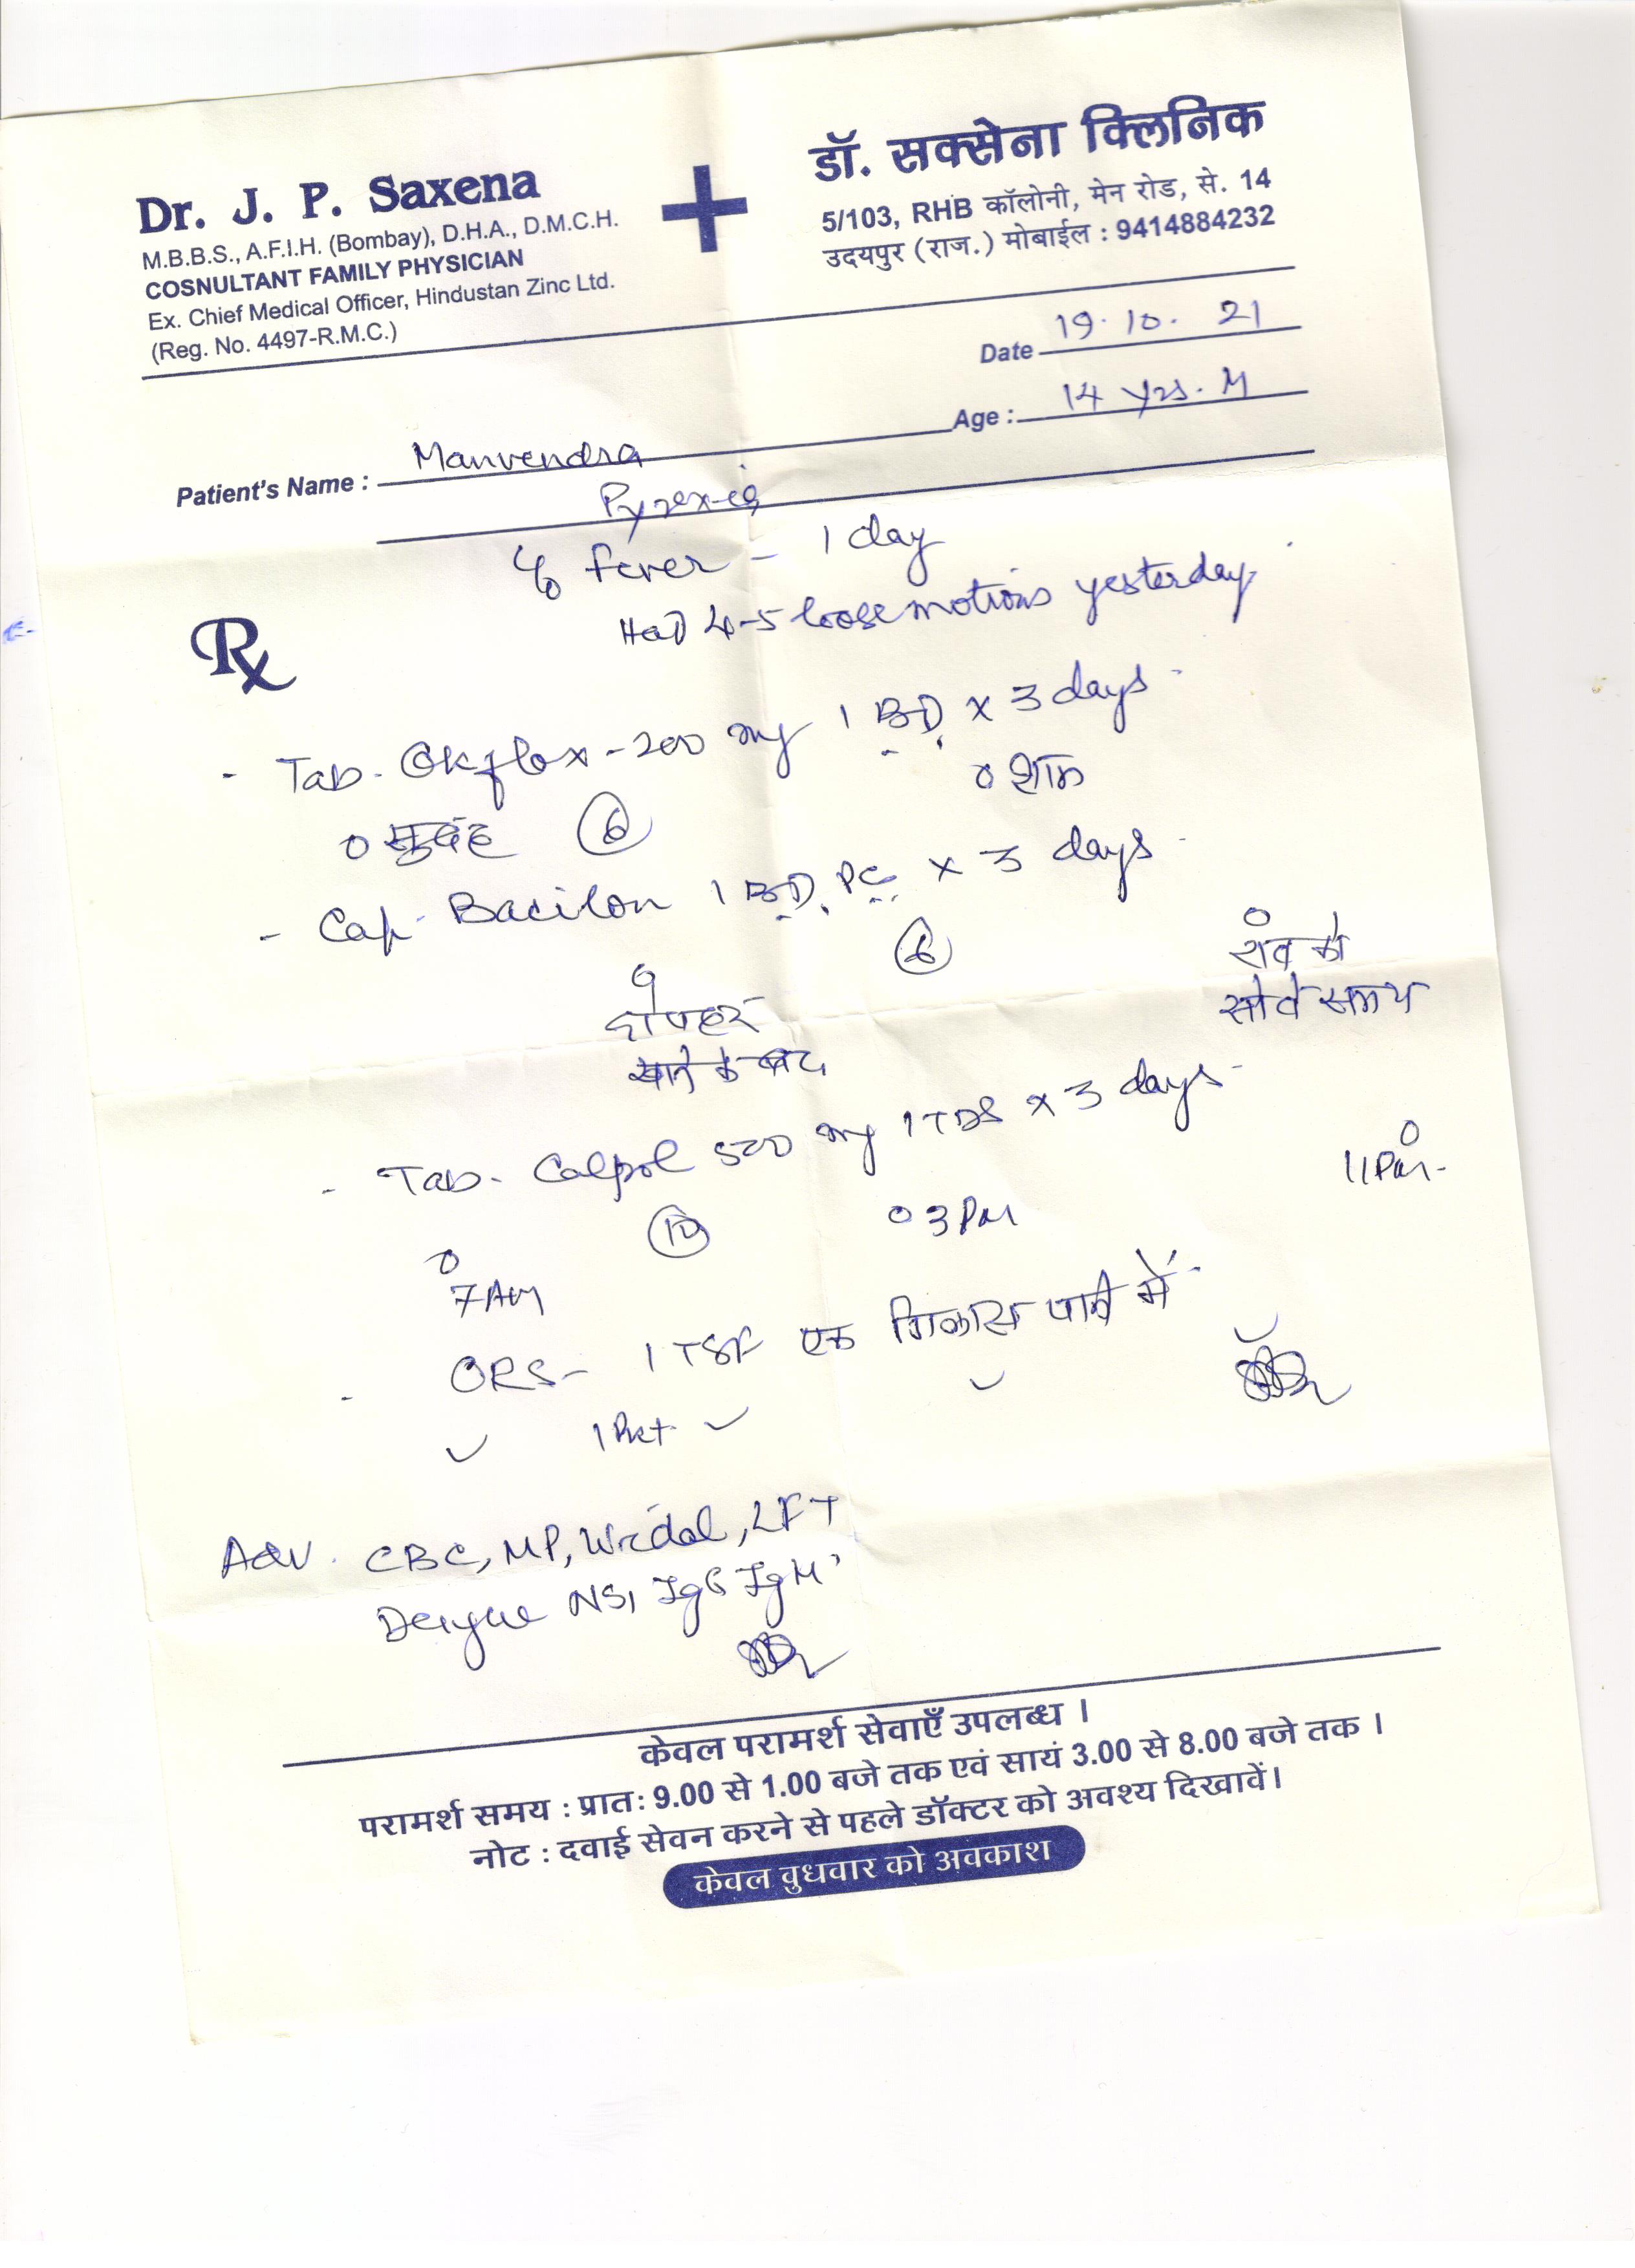 Dr. J. P. Saxena
M.B.B.S., A.F.I.H. (Bombay), D.H.A., D.M.C.H.
COSNULTANT FAMILY PHYSICIAN
Ex. Chief Medical Officer, Hindustan Zinc Ltd.
(Reg. No. 4497-R.M.C.)
डॉ. सक्सेना क्लिनिक
5/103, RHB कॉलोनी, मेन रोड, से. 14
उदयपुर (राज.) मोबाईल : 9414884232
Date 19.10.21
Age : 14 yrs. M
Patient's Name : Manvendra
Pyrexia
c/o fever - 1 day
Had 4-5 loose motions yesterday
Rx
- Tab. Okflox-200 mg 1 BD x 3 days
0 सुबह 6 0 शाम
- Cap. Bacilon 1 BD. PC x 3 days
6
दोपहर खाने के बाद
0 रात को सोते समय
- Tab. Calpol 500 mg 1 TDS x 3 days
0 7 AM 10 0 3 PM 0 11 PM
- ORS - 1 TSF एक गिलास पानी में
1 Pkt
Adv. CBC, MP, Widal, LFT
Dengue NS1 IgG IgM
केवल परामर्श सेवाएँ उपलब्ध ।
परामर्श समय : प्रातः 9.00 से 1.00 बजे तक एवं सायं 3.00 से 8.00 बजे तक ।
नोट : दवाई सेवन करने से पहले डॉक्टर को अवश्य दिखावें।
केवल बुधवार को अवकाश